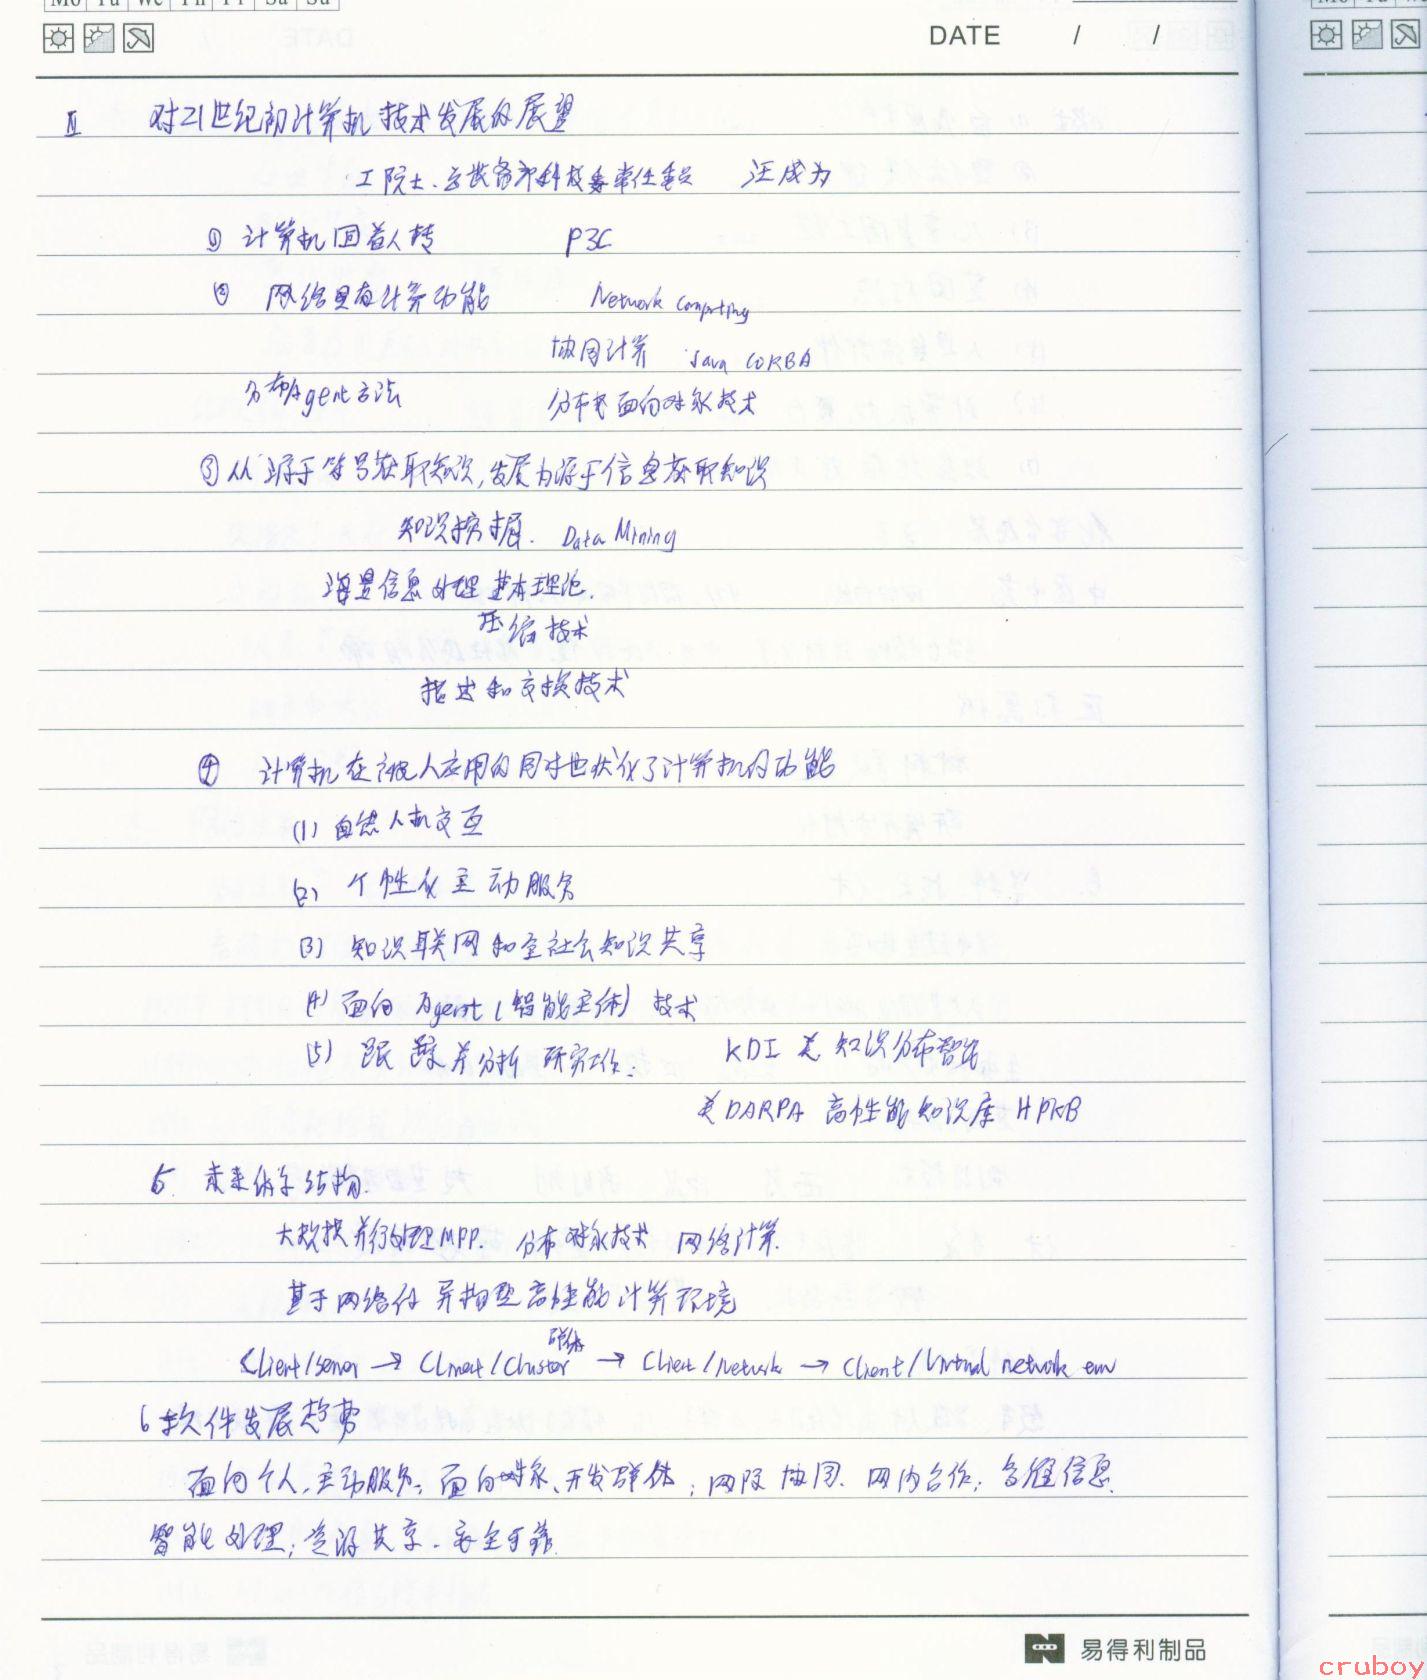 Mo Tu We Th Fr Sa Su
DATE / /
II 对21世纪初计算机技术发展的展望
工院士、总装备部科技委常任委员 汪成为
① 计算机围着人转 P3C
② 网络具有计算功能 Network Computing
协同计算 Java CORBA
分布Agent方法 分布式面向对象技术
③ 从源于符号获取知识,发展为源于信息获取知识
知识挖掘. Data Mining
海量信息处理基本理论.
压缩技术
描述和交换技术
④ 计算机在被人应用的同时也优化了计算机的功能
(1) 自然人机交互
(2) 个性化主动服务
(3) 知识联网和全社会知识共享
(4) 面向Agent(智能主体)技术
(5) 跟踪并分析研究工作: KDI 美 知识分布智能
美DARPA 高性能知识库HPKB
5. 未来体系结构.
大规模并行处理MPP. 分布对象技术 网络计算.
基于网络的异构型高性能计算环境
群体
Client/Server → Client/Cluster → Client/Network → Client/Virtual network env
6 软件发展趋势
面向个人、主动服务、面向对象、开发群体;网际协同、网内合作;多维信息、
智能处理;资源共享、安全可靠.
易得利制品
cruboy